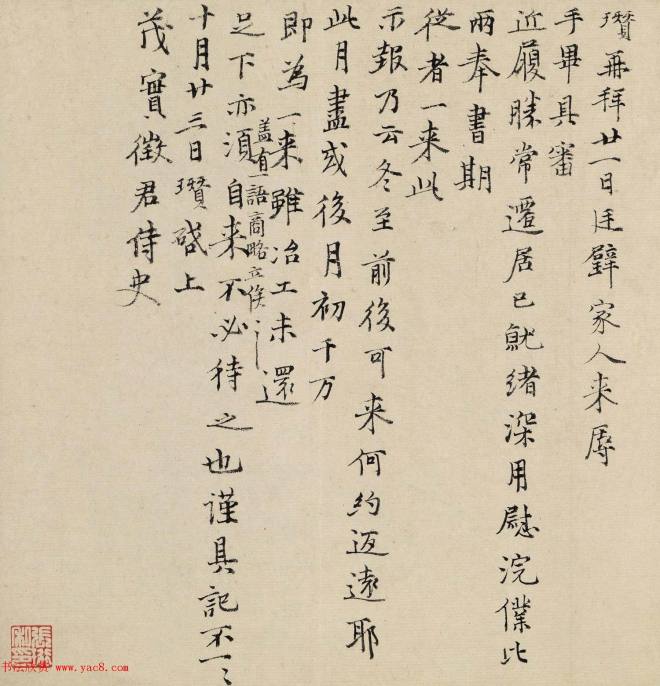 瓒再拜廿一日廷璧家人来辱
手畢具審
近履勝常遷居已就緒深用慰浣僕比
兩奉書期
從者一来此
示報乃云冬至前後可来何約迈遠耶
此月盡或後月初千万
即為一来雖冶工未還
盖有一語商略立俟
足下亦須自来不必待之也謹具記不一〻
十月廿三日瓒啓上
茂實徵君侍史
书法欣赏 www.yac8.com